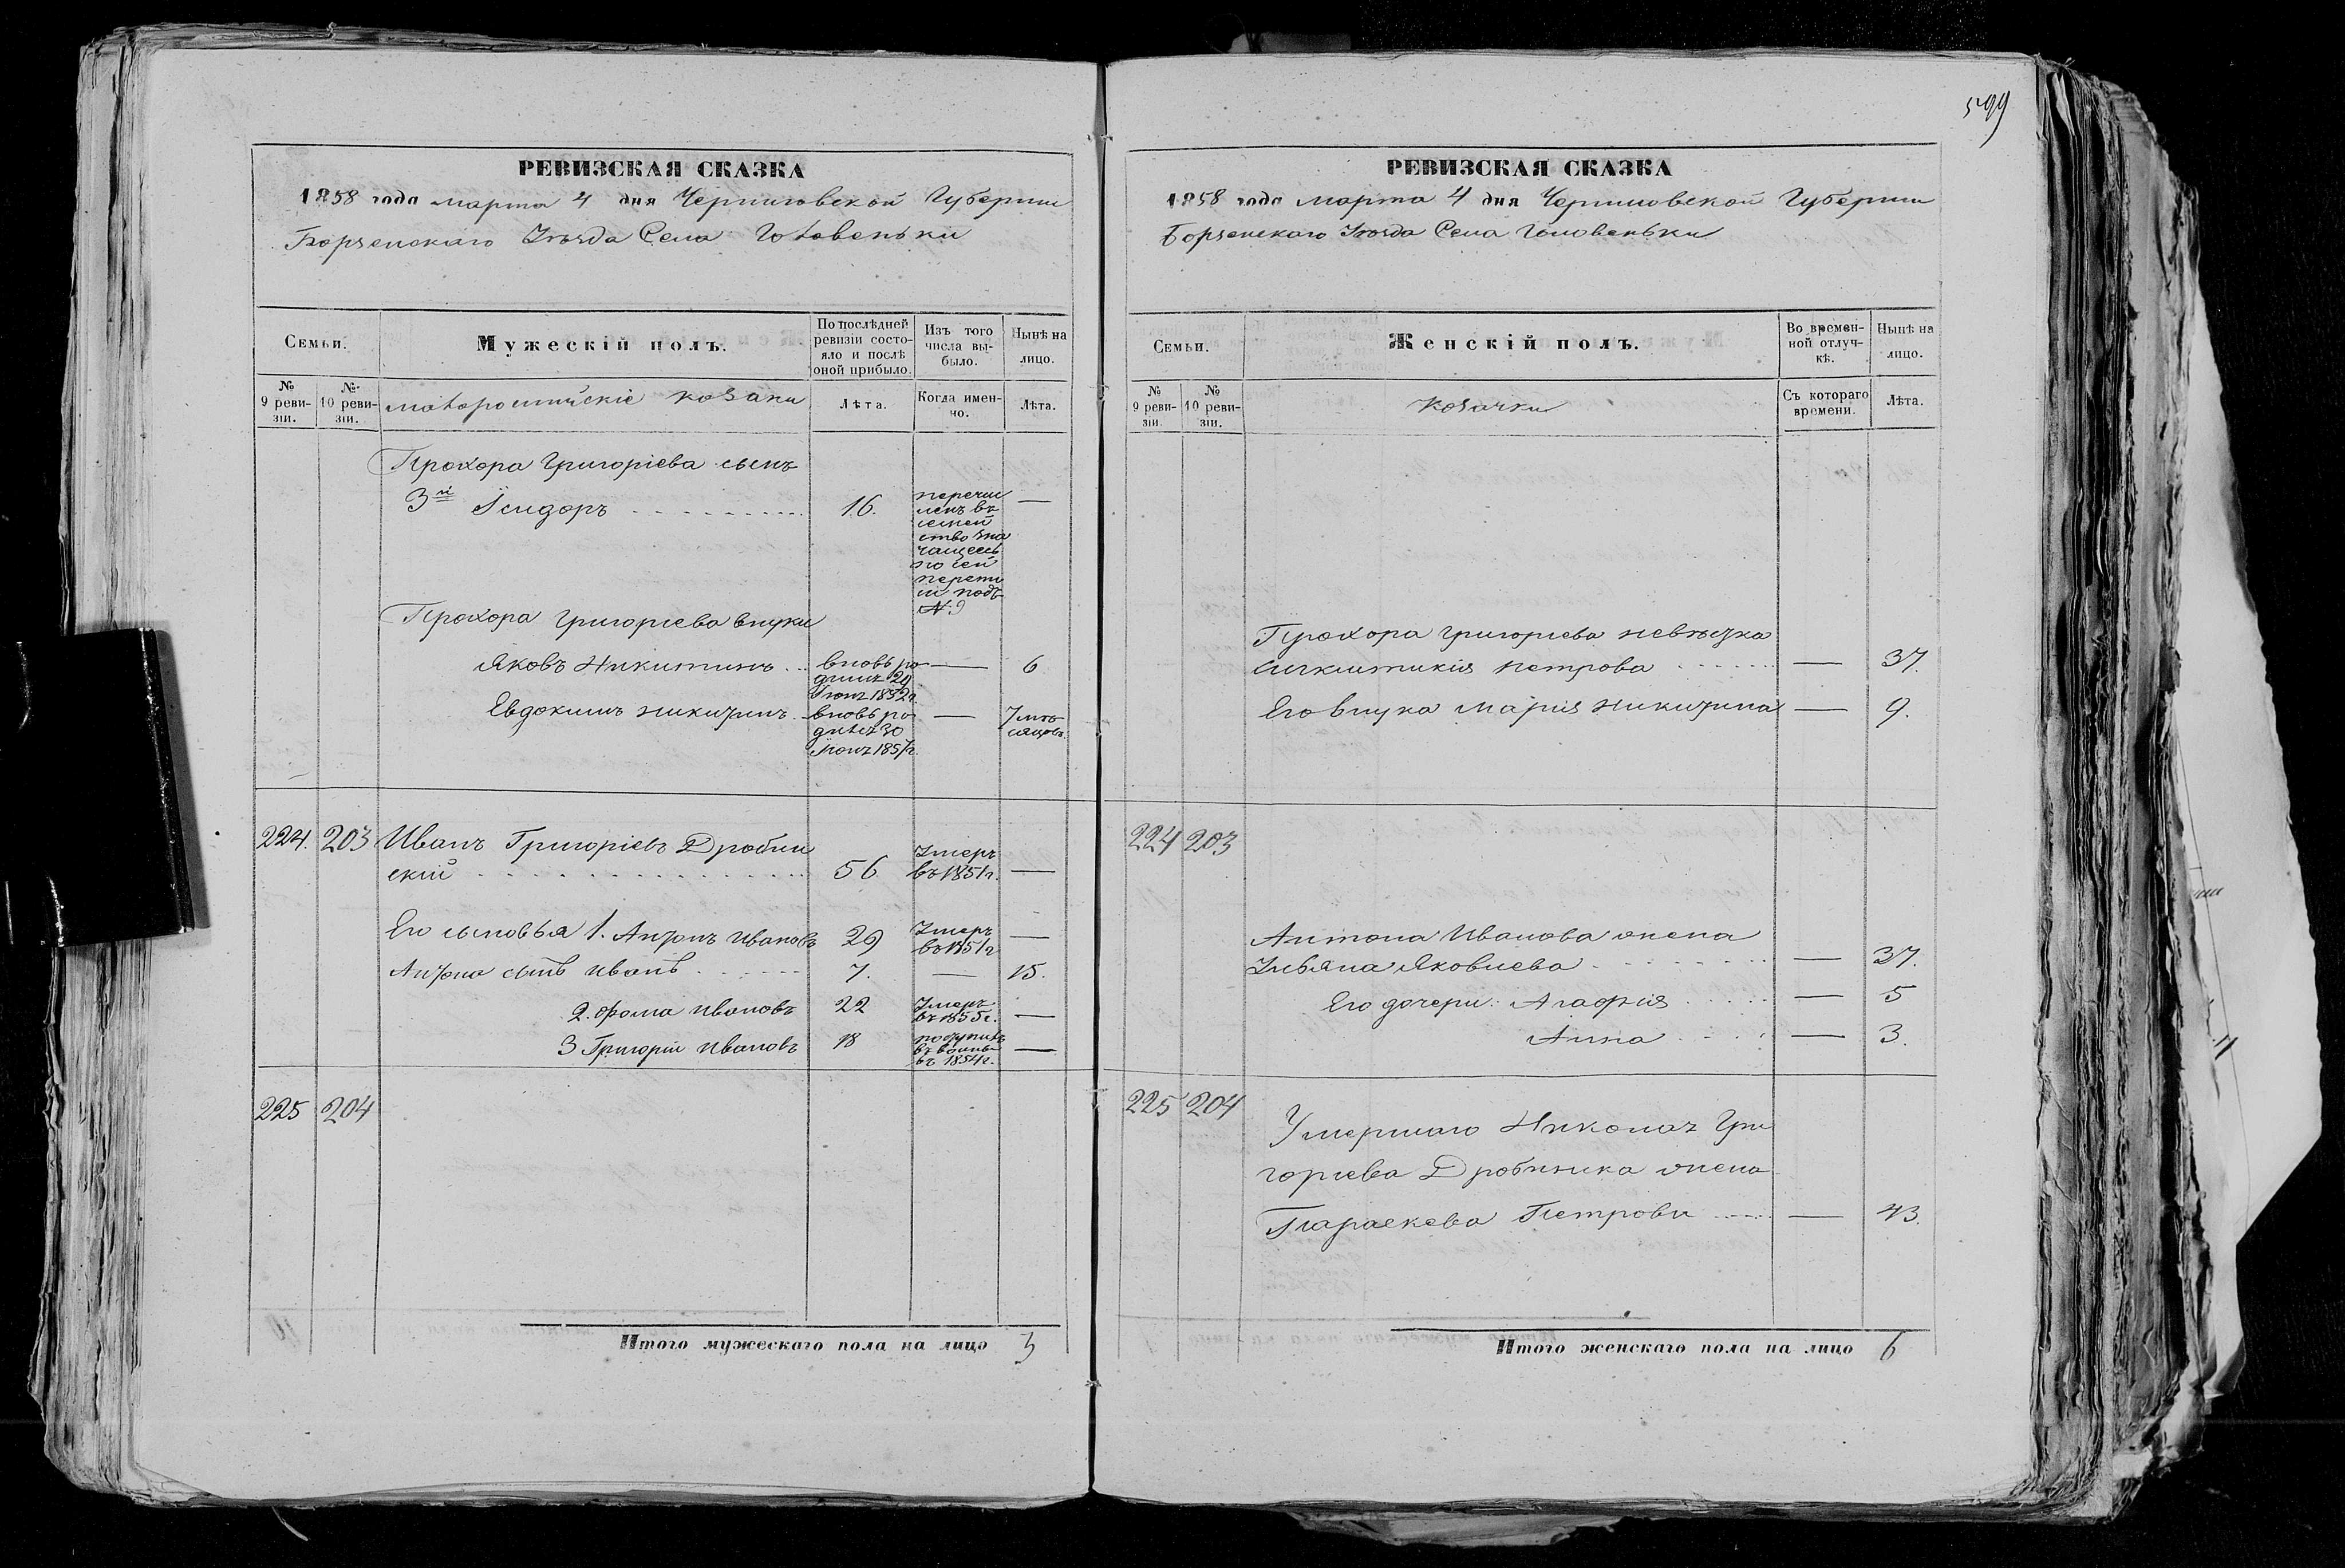 РЕВИЗСКАЯ СКАЗКА
1858 года марта 4 дня Черниговской Губернии
Борзенскаго Уѣзда Села Головеньки
Семьи.
Мужескій полъ.
По послѣдней ревизіи состояло и послѣ оной прибыло.
Изъ того числа выбыло.
Нынѣ на лицо.
№ 9 ревизіи.
№ 10 ревизіи.
малоросійскіе козаки
Лѣта.
Когда именно.
Лѣта.
Прохора Григоріева сынъ
3й Ісидоръ 16. перечи
сленъ въ
семей
ство зна
чащееся
по сей
переписи
подъ
№ 9 —
Прохора Григоріева внуки
Яковъ Никитинъ вновь ро
дился 29
Іюня 1852 г. — 6
Евдокимъ Никитинъ вновь ро
дился 30
Іюня 1857 г. — 7 мѣ
сяцовъ
224. 203 Иванъ Григоріевъ Дробни
скій 56 Умеръ
въ 1851 г. —
Его сыновья 1. Антонъ Ивановъ 29 Умеръ
въ 1851 г —
Антона сынъ Иванъ 7. — 15.
2. Фома Ивановъ 22 Умеръ
въ 1855 г. —
3 Григорій Ивановъ 18 поступилъ
въ
въ 1854 г. —
225 204
Итого мужескаго пола на лицо 3
599
РЕВИЗСКАЯ СКАЗКА
1858 года марта 4 дня Черниговской Губернии
Борзенскаго Уѣзда Села Головеньки
Семьи.
Женскій полъ.
Во временной отлучкѣ.
Нынѣ на лицо.
№ 9 ревизіи.
№ 10 ревизіи.
козачки
Съ котораго времени.
Лѣта.
Прохора Григоріева невѣстка
Петрова — 37.
Его внука Марія Никитина — 9.
224 203
Антона Иванова жена
Ульяна Яковлева — 37.
Его дочери: Агафія — 5
Анна — 3.
225 204
Умершаго Николая Гри
горіева Дробинка жена
Параскева Петрова — 43.
Итого женскаго пола на лицо 6